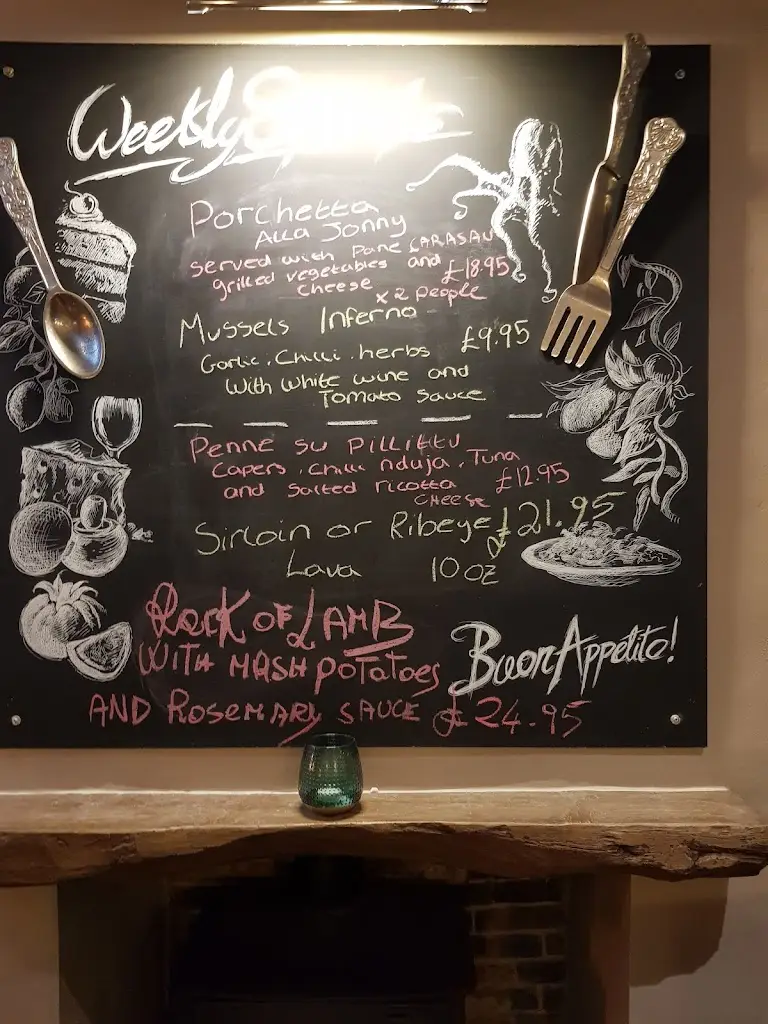 Weekly Specials
Porchetta
Alla Jonny
served with Pane CARASAU
grilled vegetables and £18.95
cheese x 2 people
Mussels Inferno £9.95
Garlic, Chilli, herbs
with white wine and
Tomato sauce
Penne su Pillittu
Capers, Chilli nduja, Tuna
and Salted ricotta £12.95
CHEESE
Sirloin or Ribeye £21.95
Lava 10 oz
Rack OF LAMB
WITH MASH potatoes
AND Rosemary SAUCE £24.95
Buon Appetito!